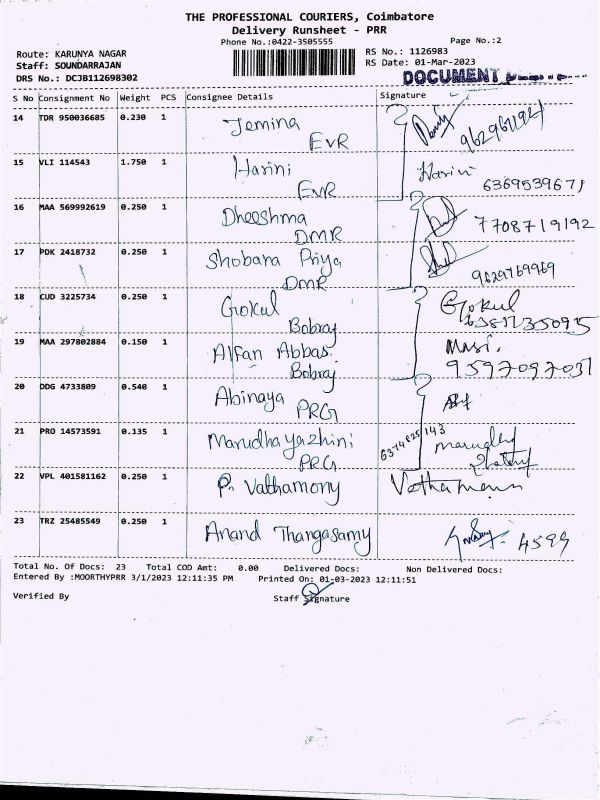 THE PROFESSIONAL COURIERS, Coimbatore
Delivery Runsheet - PRR
Phone No.:0422-3505555 Page No.:2
Route: KARUNYA NAGAR RS No.: 1126983
Staff: SOUNDARRAJAN RS Date: 01-Mar-2023
DRS No.: DCJB112698302 DOCUMENT
S No Consignment No Weight PCS Consignee Details Signature
14 TDR 950036685 0.230 1 Jemina
EVR
15 VLI 114543 1.750 1 Harini Harini
EVR 6369539671
16 MAA 569992619 0.250 1 Dheeshma 7708719192
DMR
17 PDK 2418732 0.250 1 Shobana Priya
DMR 9629769969
18 CUD 3225734 0.250 1 Gokul Gokul
Bobray
19 MAA 297802884 0.150 1 Alfan Abbas.
Bobray 9597097031
20 DDG 4733809 0.540 1 Abinaya
PRG
21 PRO 14573591 0.135 1 Marudhayazhini
PRG
22 VPL 401581162 0.250 1 P. Vathamony
23 TRZ 25485549 0.250 1 Anand Thangasamy 4599
Total No. Of Docs: 23 Total COD Amt: 0.00 Delivered Docs: Non Delivered Docs:
Entered By :MOORTHYPRR 3/1/2023 12:11:35 PM Printed On: 01-03-2023 12:11:51
Verified By Staff Signature